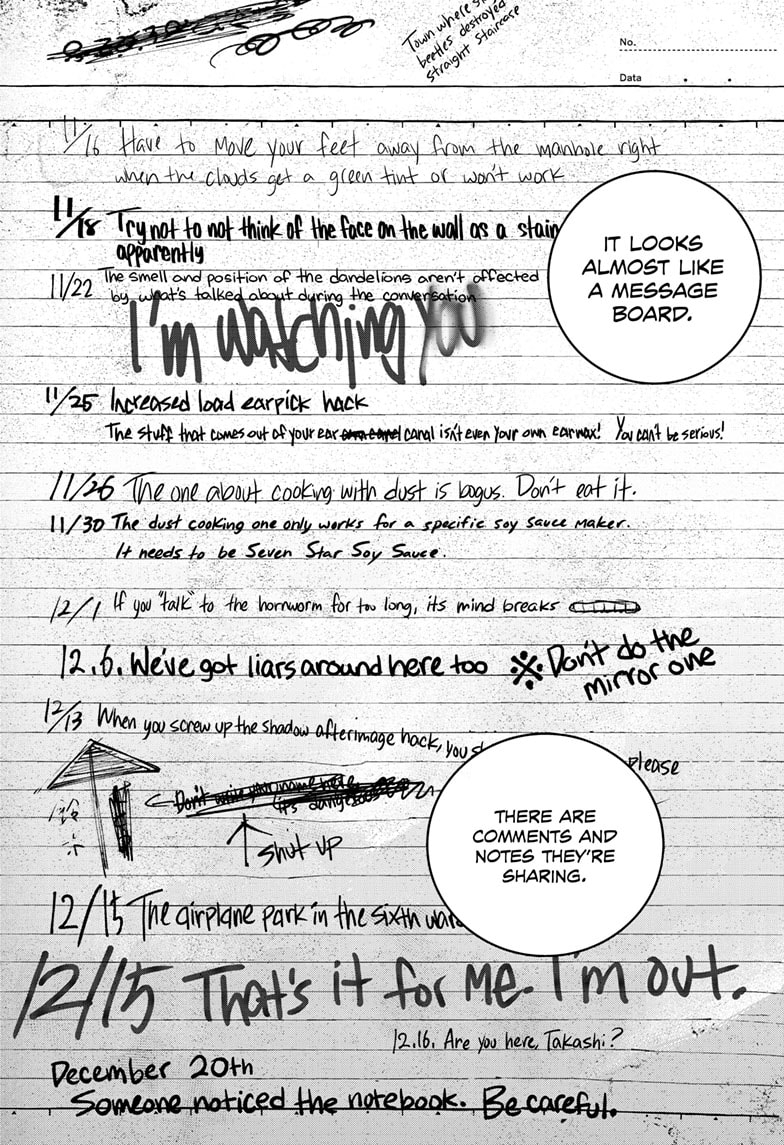 Town where s
beetles destroyed
straight staircase
No.
Data
11/16 Have to move your feet away from the manhole right
when the clouds get a green tint or won't work
11/18 Try not to not think of the face on the wall as a stain
apparently
IT LOOKS
ALMOST LIKE
A MESSAGE
BOARD.
11/22 The smell and position of the dandelions aren't affected
by what's talked about during the conversation
I'm watching you
11/25 Increased load earpick hack
The stuff that comes out of your ear canal isn't even your own earwax! You can't be serious!
11/26 The one about cooking with dust is bogus. Don't eat it.
11/30 The dust cooking one only works for a specific soy sauce maker.
It needs to be Seven Star Soy Sauce.
12/1 If you "talk" to the hornworm for too long, its mind breaks
12.6. We've got liars around here too ※ Don't do the
mirror one
12/13 When you screw up the shadow afterimage hack, you s
please
Don't write your name here
its dangerous
shut up
THERE ARE
COMMENTS AND
NOTES THEY'RE
SHARING.
12/15 The airplane park in the sixth ward
12/15 That's it for me. I'm out.
12.16. Are you here, Takashi?
December 20th
Someone noticed the notebook. Be careful.